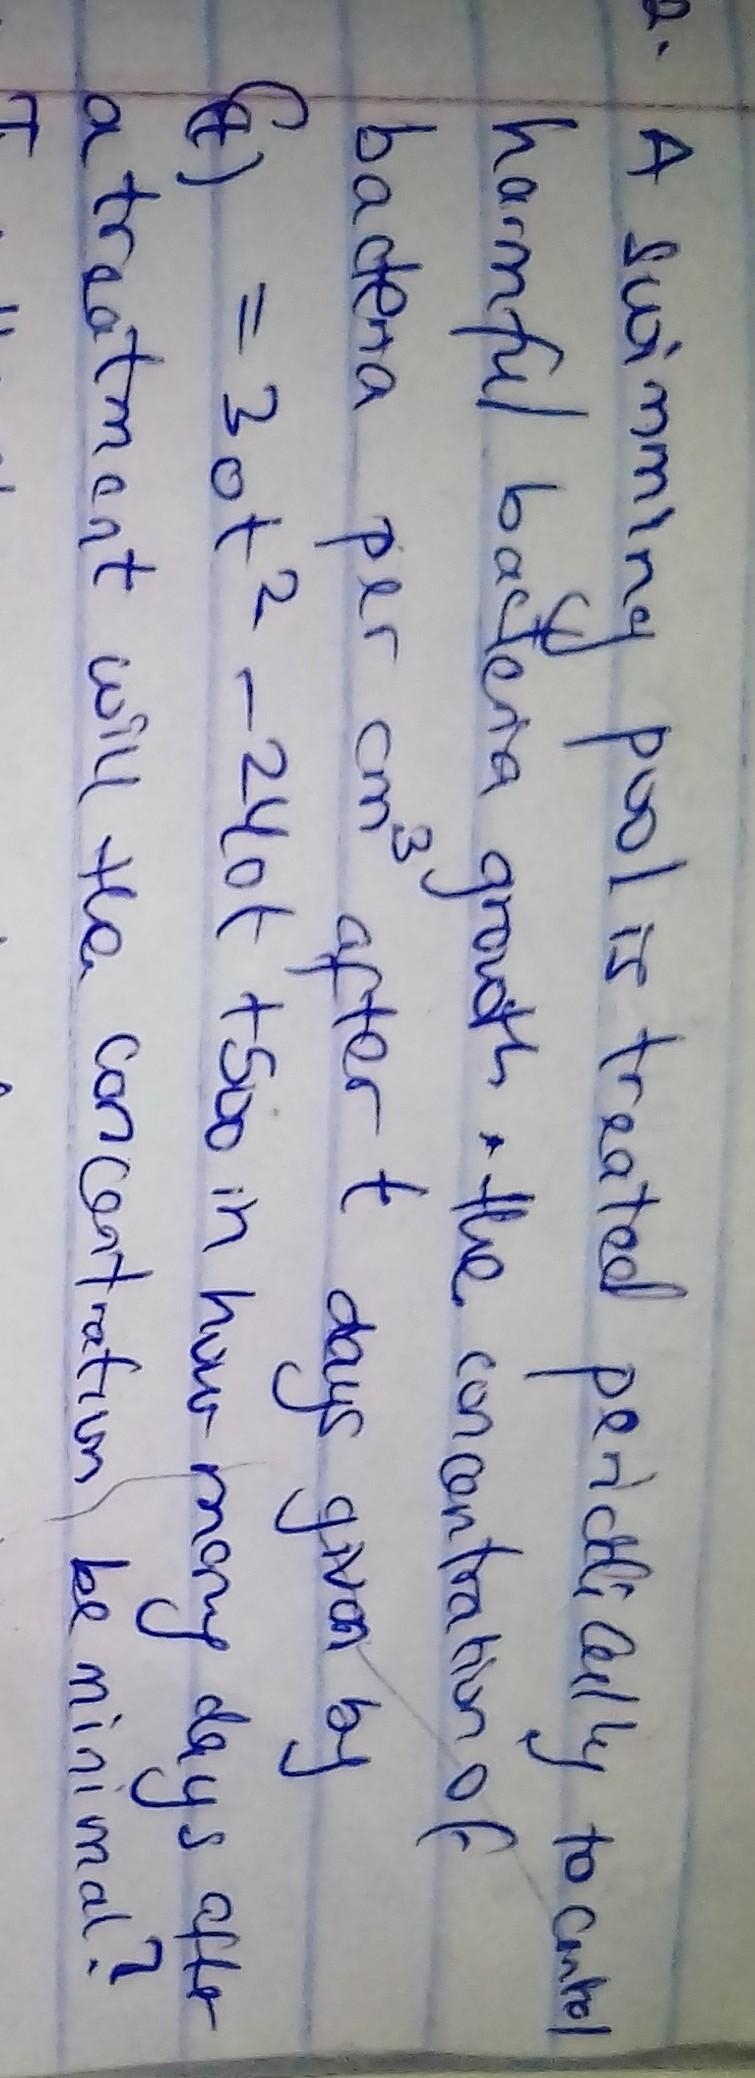 2. A swimming pool is treated periodically to control
harmful bacteria growth. the concentration of
bacteria per cm³ after t days given by
C(t) = 30t² - 240t + 500 in how many days after
a treatment will the concentration be minimal?